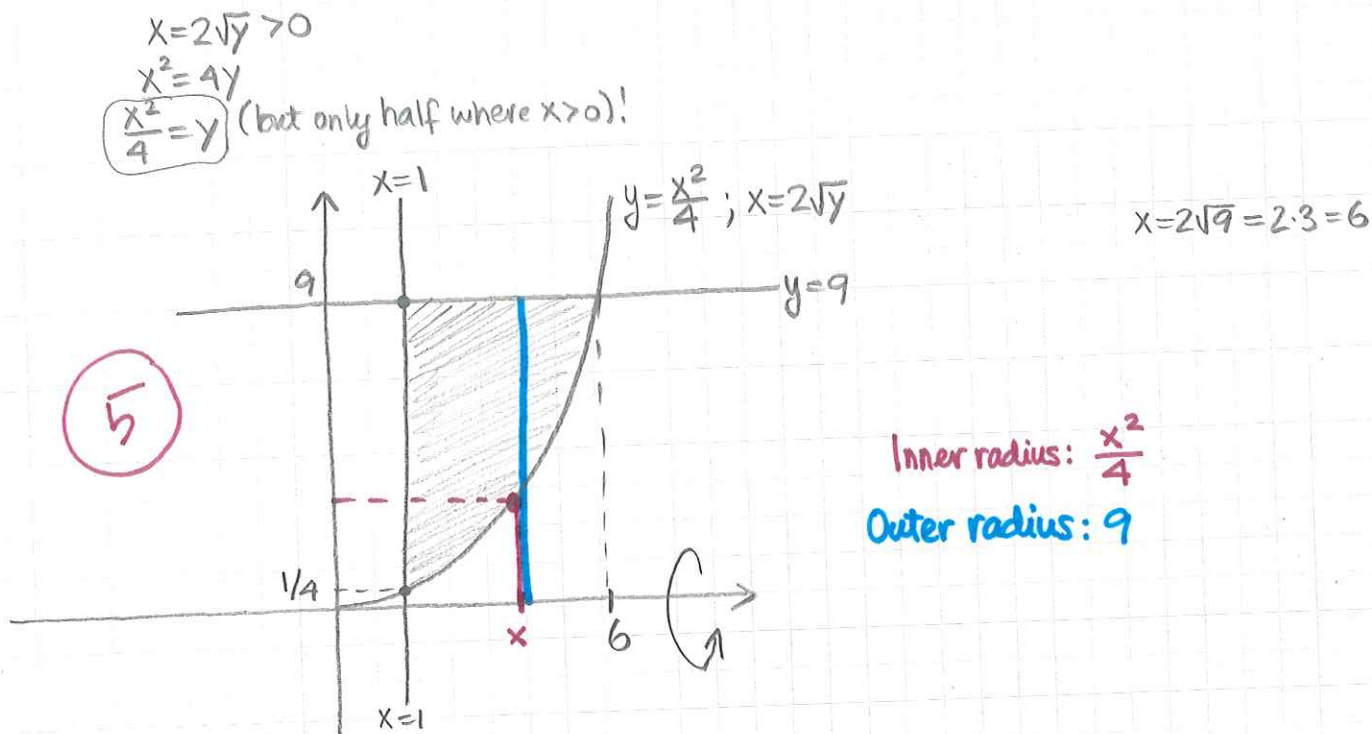 x=2√y >0
x²=4y
x²/4=y (but only half where x>0)!
x=1
y=x²/4 ; x=2√y
x=2√9=2·3=6
9
y=9
5
Inner radius: x²/4
Outer radius: 9
1/4
x
6
x=1